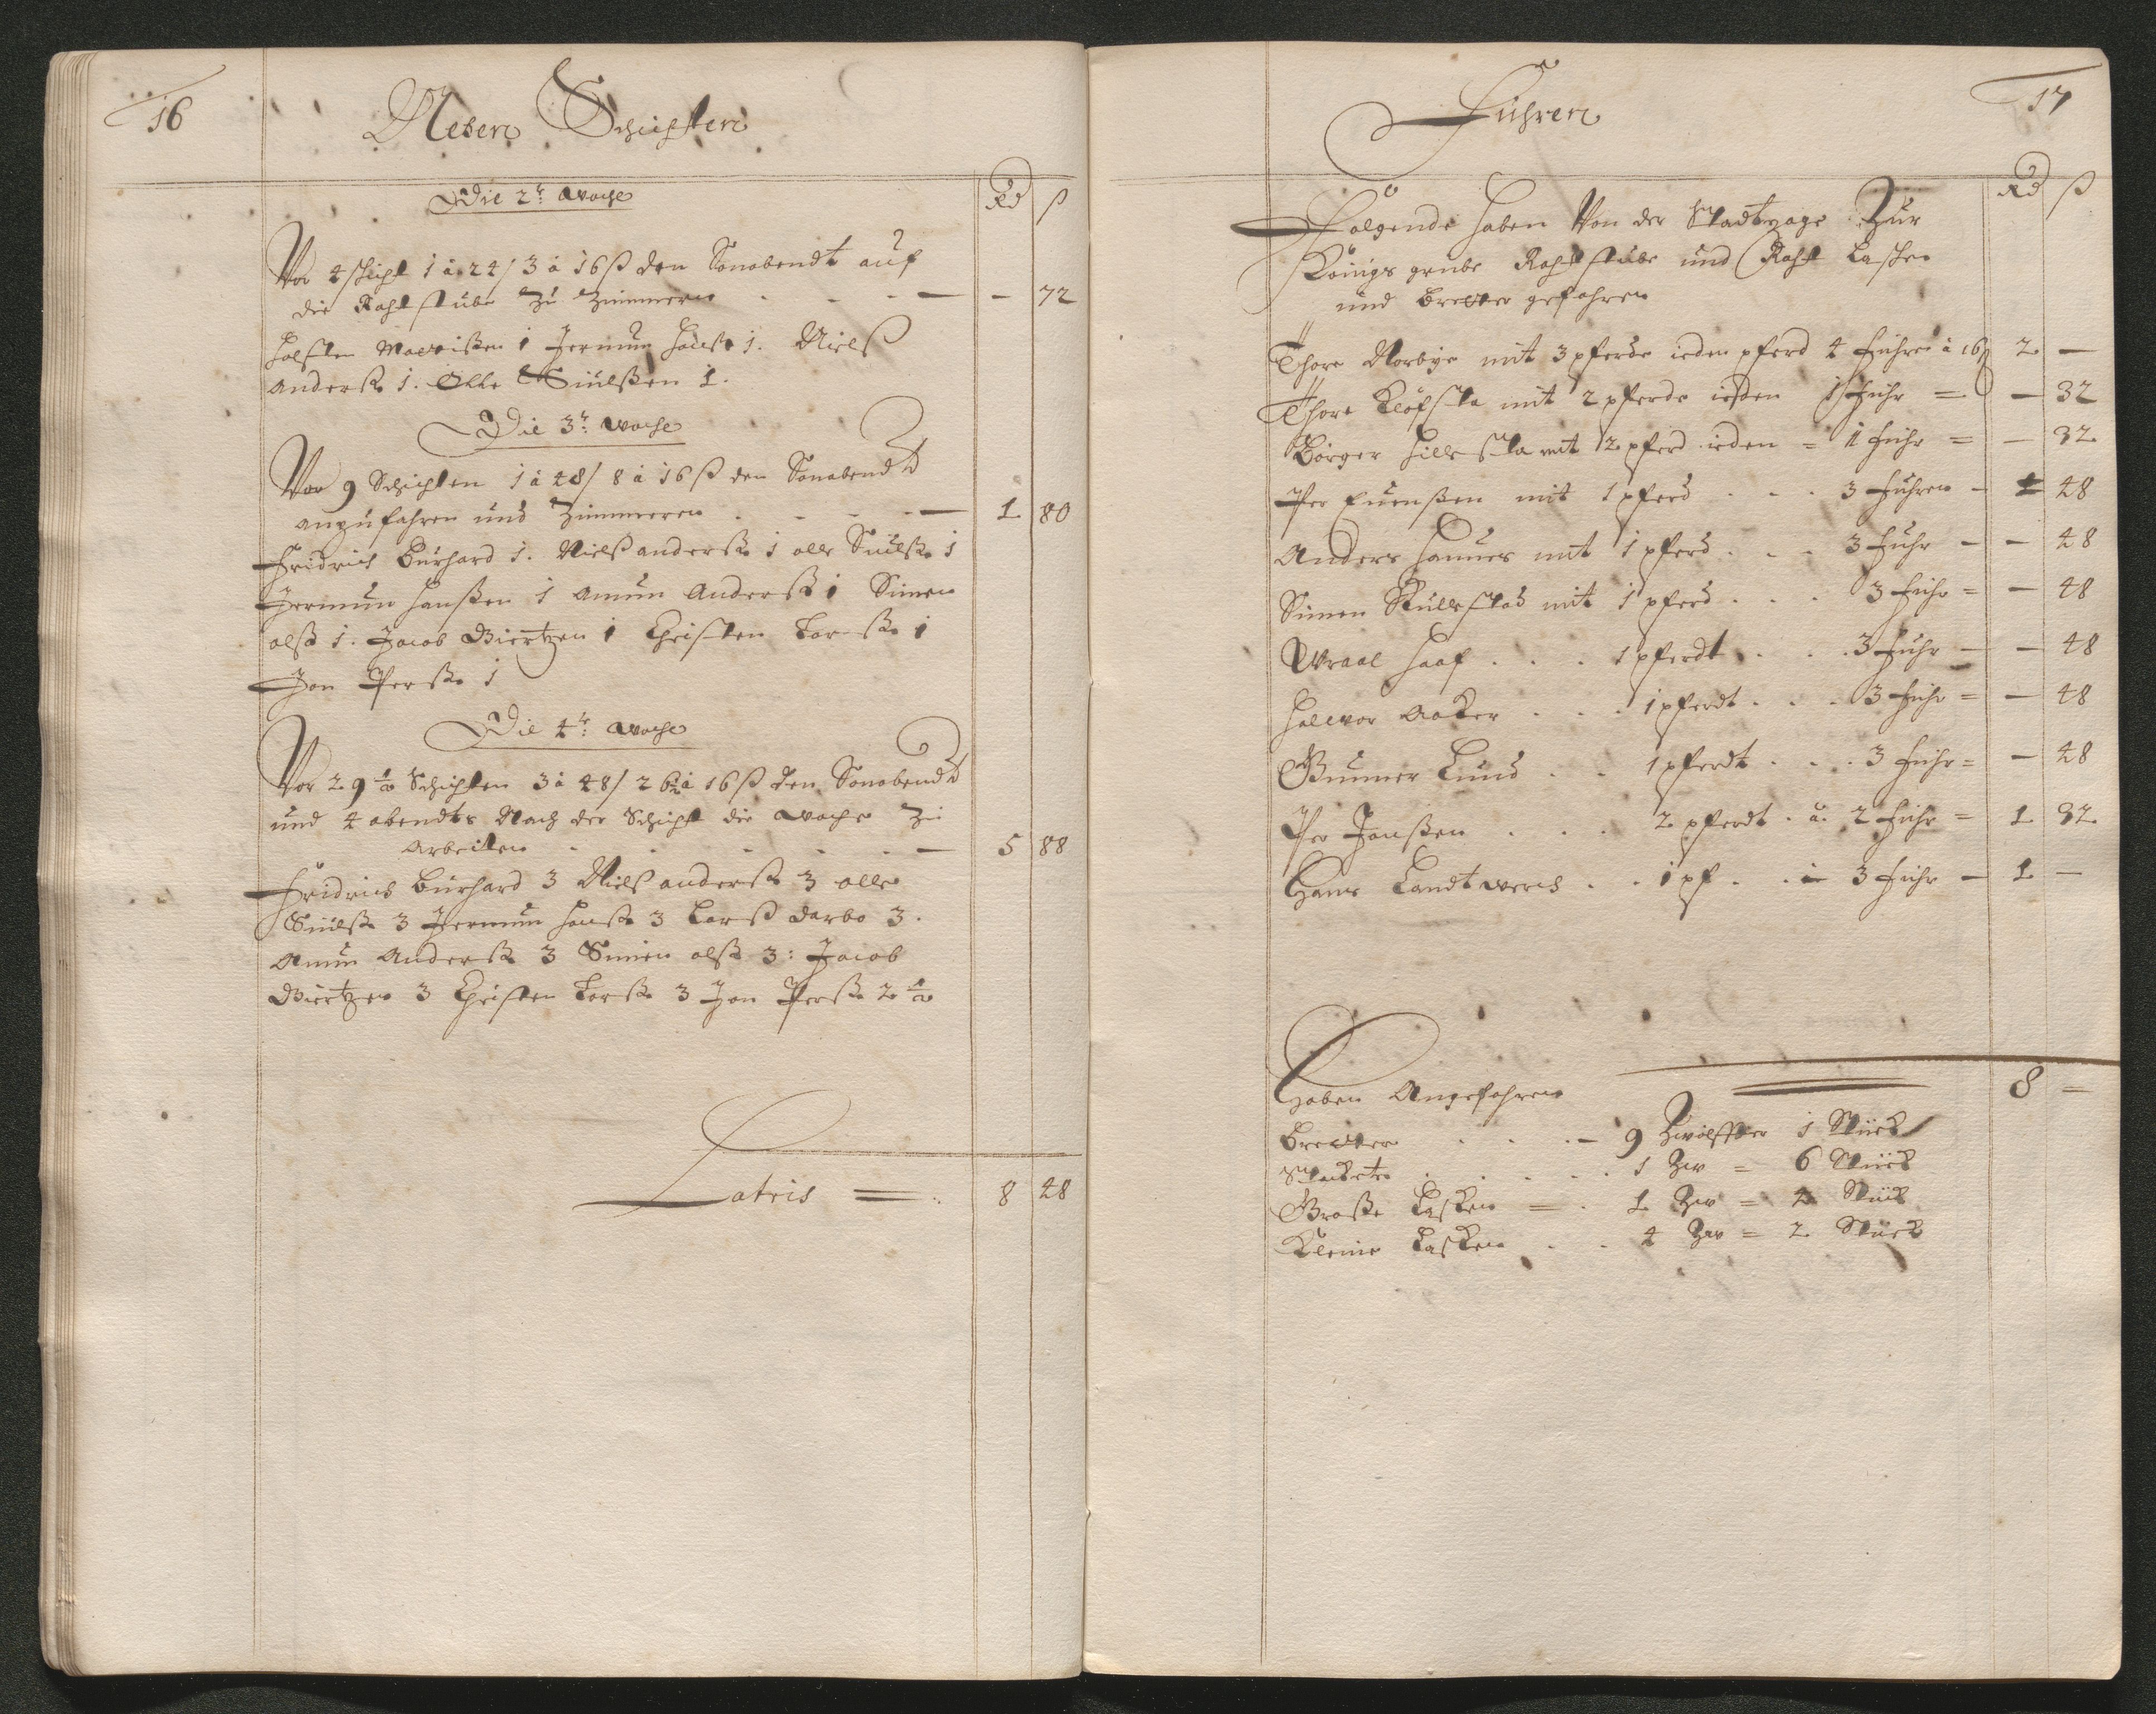 16
Neben Schichten
Rd ß
Die 2te woche
Vor 4 schicht 1 à 24/ 3 à 16 ß den Sonabendt auf
die Rahtstube zu Zimmern - 72
Holsten 1 Jermun Hanß 1. Nielß
Anderß 1. Olle Siulßen 1.
Die 3te woche
Vor 9 Schichten 1 à 48/ 8 à 16 ß den Sonabendt
anzufahren und Zimmeren 1 80
Fridrich Burhard 1. Nielß anderß 1 olle Siulß 1
Jermun Hanßen 1 Amun Anderß 1 Simen
olß 1. Jacob Giertzen 1 Christen Larß 1
Jon Perß 1
Die 4te woche
Vor 29 1/2 Schichten 3 à 48/ 26 1/2 à 16 ß den Sonabendt
und 4 abendts Nach der Schicht die woche zu
Arbeiten 5 88
Fridrich Burhard 3 Nielß anderß 3 olle
Siulß 3 Jermun Hanß 3 Larß Darbo 3.
Amun Anderß 3 Simen olß 3: Jacob
Giertzen 3 Christen Larß 3 Jon Perß 2 1/2
Latris = 8 48
17
Fuhren
Rd ß
Folgende haben Von der Stadtzage Zur
Königs grube Rahtstube und Raht
und Bretter gefahren
Thore Norbye mit 3 pferde ieden pferd 4 fuhren à 16 ß 2 —
Thore Klöfsta mit 2 pferde ieden 1 fuhr = — 32
Börger Hillesta mit 2 pferd ieden = 1 fuhr = — 32
Per Euenßen mit 1 pferd . . . 3 fuhren - 48
Anders Hannes mit 1 pferd . . . 3 fuhr - — 48
Simen Skullestad mit 1 pferd . . . 3 fuhr = — 48
Wraal Haaf . . . 1 pferdt . . . 3 fuhr - — 48
Halwor Aaker . . . 1 pferdt . . . 3 fuhr = — 48
Gunner Lund . . 1 pferdt . . . 3 fuhr = — 48
Per Janßen . . . 2 pferdt . à 2 fuhr = 1 32
Hans Landtwerck . . 1 pf . . 3 fuhr — 1 —
8 —
Haben Angefahren
Bretter . . . — 9 Zwölffter 1 Stück
1 Zw = 6 Stück
Große Lasken = . 1 Zw = 4 Stück
Kleine Lasken . . 4 Zw = 2 Stück